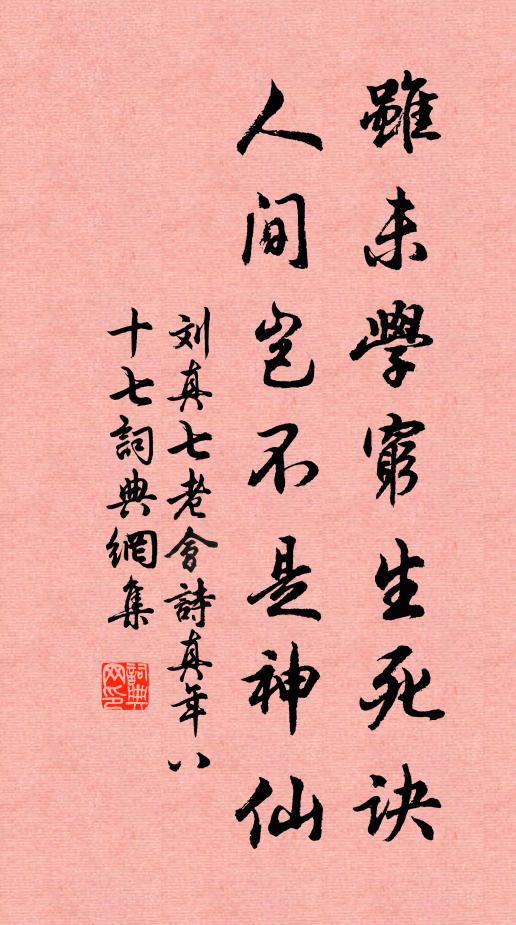 雖未學窮生死訣
人间岂不是神仙
刘真七老會詩真年八
十七詞典網集
詞典
网印